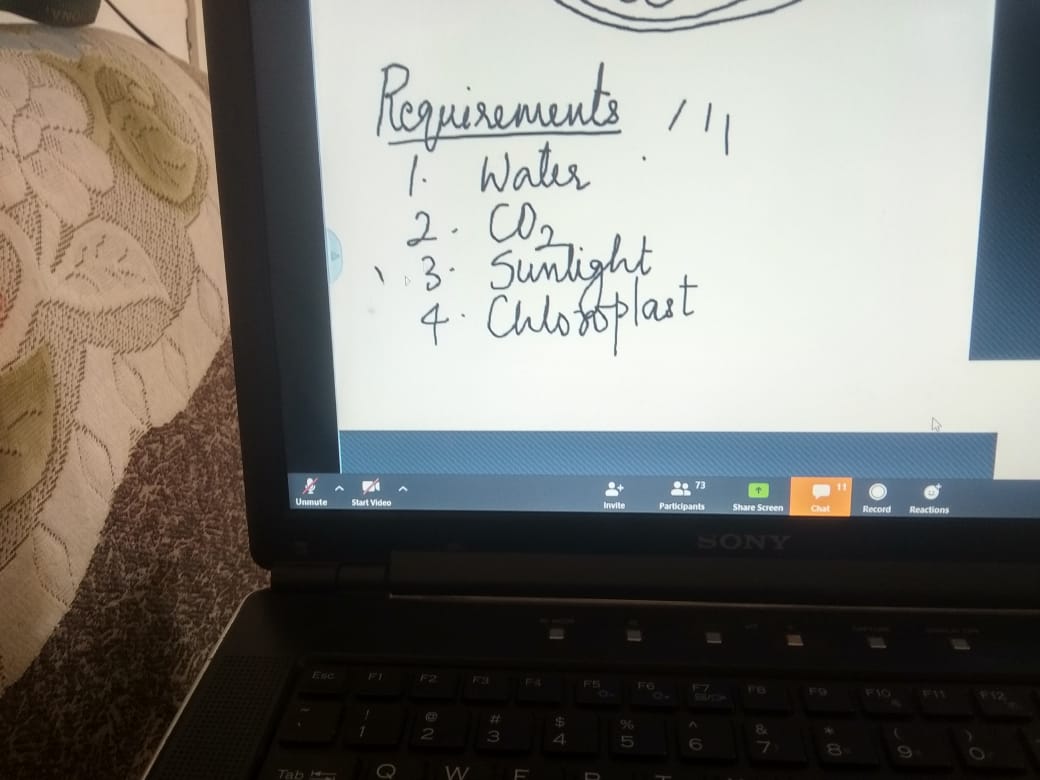 Requirements
1. Water
2. CO2
3. Sunlight
4. Chloroplast
73
11
Unmute
Start Video
Invite
Participants
Share Screen
Chat
Record
Reactions
SONY
Esc F1 F2 F3 F4 F5 F6 F7 F8 F9 F10 F11 F12
~ ! @ # $ % ^ & * ( )
` 1 2 3 4 5 6 7 8 9 0
Tab Q W E R